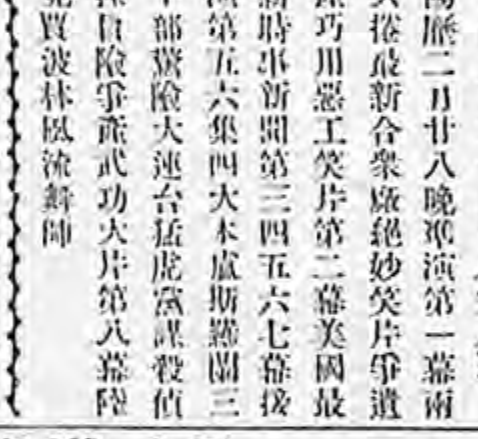 陽曆二月廿八晚準演第一幕兩
大捲最新合衆廠絕妙笑片爭遺
產巧用惡工笑片第二幕美國最
新時事新聞第三四五六七幕接
演第五六集四大本盧斯鬧三
部黨險大連台猛虎黨謀殺偵
探冒險爭產武功大片第八幕陸
克買波林風流舞師